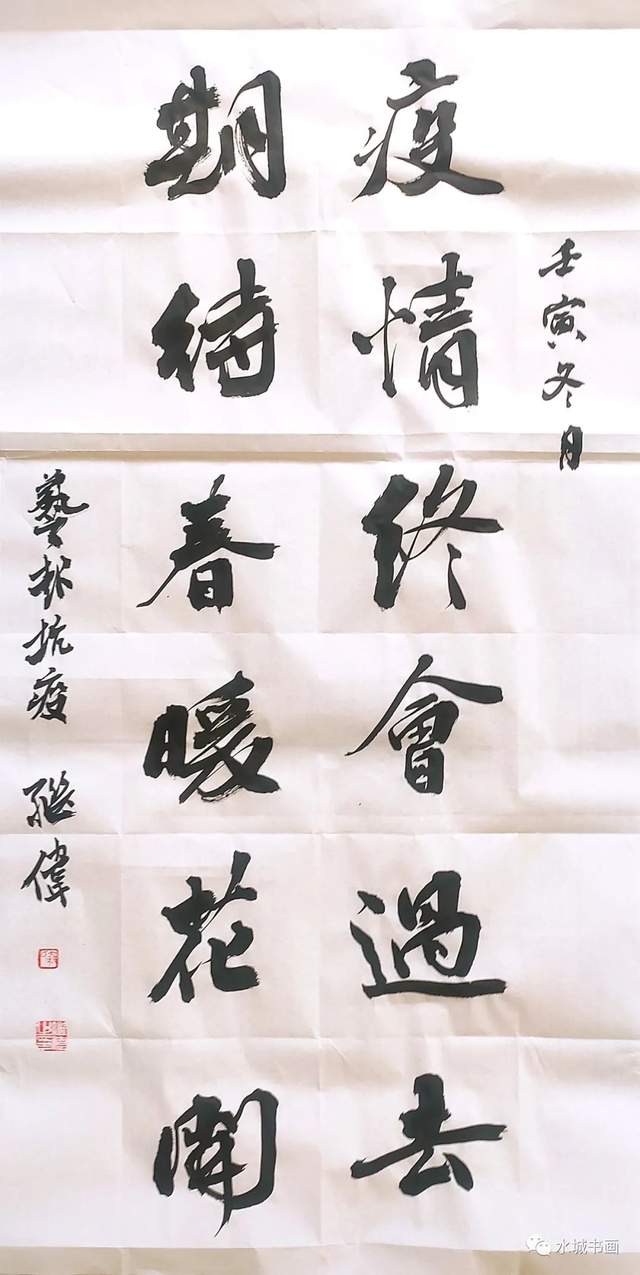 壬寅冬月
疫情終會過去
期待春暖花開
藝術抗疫
繼偉
水城书画